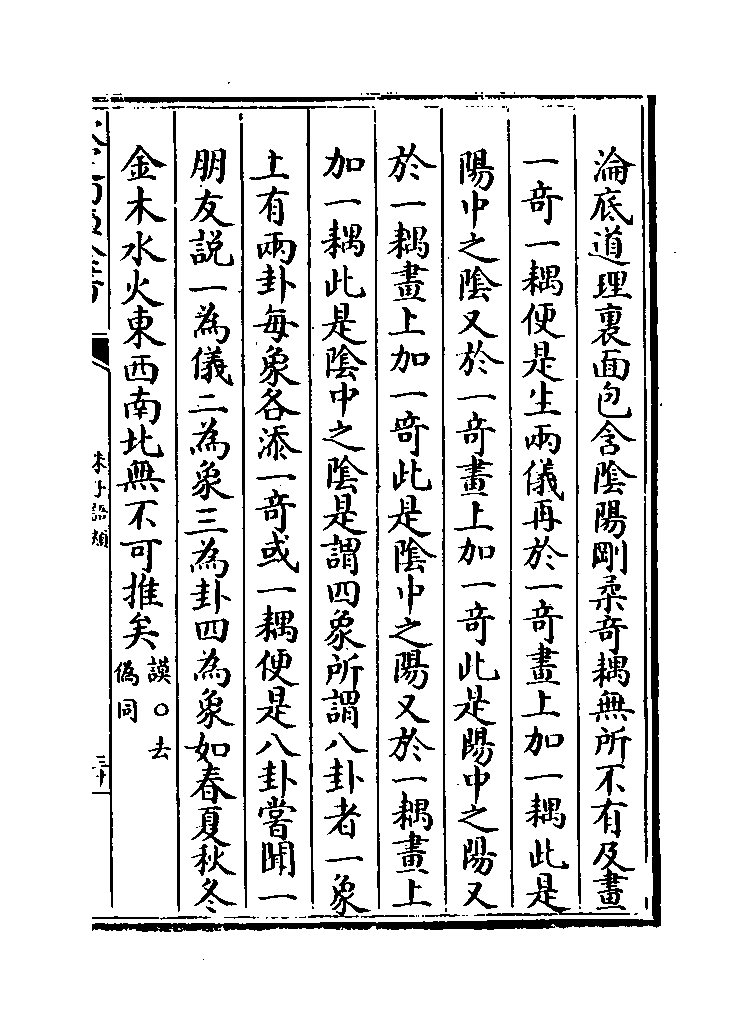 淪底道理裏面包含陰陽剛柔奇耦無所不有及畫
一奇一耦便是生兩儀再於一奇畫上加一耦此是
陽中之陰又於一奇畫上加一奇此是陽中之陽又
於一耦畫上加一奇此是陰中之陽又於一耦畫上
加一耦此是陰中之陰是謂四象所謂八卦者一象
上有兩卦每象各添一奇或一耦便是八卦嘗聞一
朋友説一為儀二為象三為卦四為象如春夏秋冬
金木水火東西南北無不可推矣
謨○去
偽同
朱子語類
三十